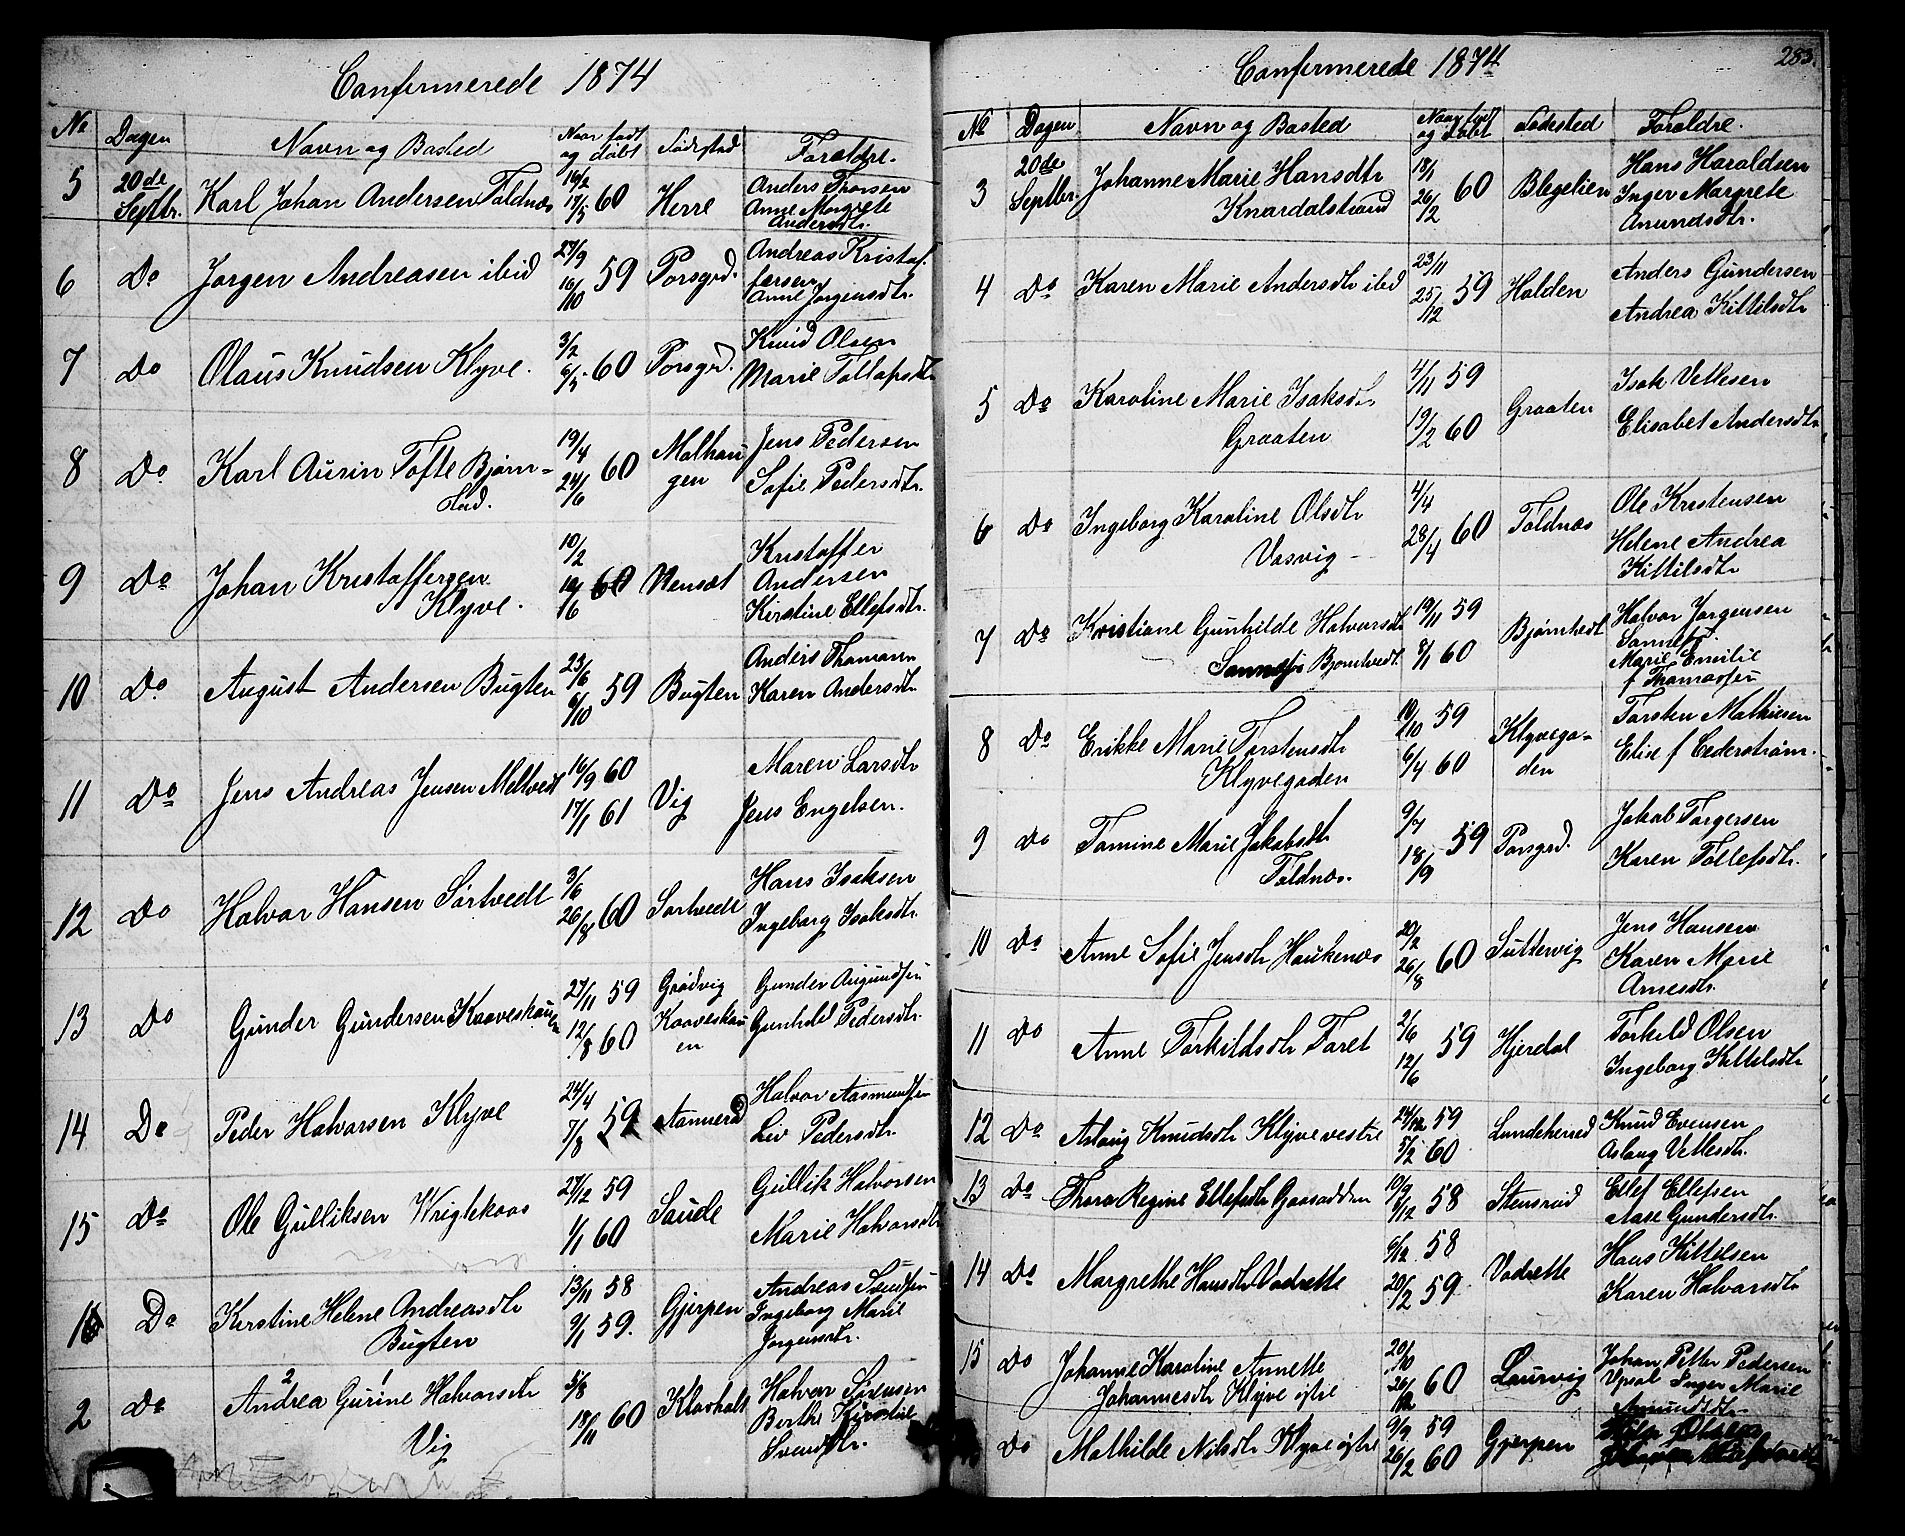 Confirmerede 1874
No Dagen Navn og Bosted Naar født og døbt Fødested Forældre.
5 20de Septbr. Karl Johan Andersen Foldnæs 16/2 17/5 60 Herre Anders Thorsen
Anne Margrete
Andersdtr.
6 Do Jørgen Andreasen ibid 27/9 16/10 59 Porsgrd. Andreas Kristof-
fersen
Anne Jørgensdtr.
7 Do Olaus Knudsen Klyve. 3/2 6/5 60 Porsgrd. Knud Olsen
Marie Tollefsdtr
8 Do Karl Aurin Tofte Bjørn- 19/4 24/6 60 Molhau Jens Pedersen
stad. gen Sofie Pedersdtr.
9 Do Johan Kristoffersen 10/2 /6 60 Vensæt Kristoffer
Klyve. Andersen
Kirstine Ellefsdtr.
10 Do August Andersen Bugten 23/6 6/10 59 Bugten Anders Thomasen
Karen Andersdtr
11 Do Jens Andreas Jensen Meltvedt 16/9 60 Vig Maren Larsdtr
17/1 61 Jens Engelsen.
12 Do Halvor Hansen Sørtvedt 3/6 26/8 60 Sortvedt Hans Isaksen
Ingeborg Isaksdtr.
13 Do Gunder Gundersen Kaaveskauen 27/11 59 Grødvig Gunder Augundsen
12/8 60 Kaaveskau Gunhild Pedersdtr.
en
14 Do Peder Halvorsen Klyve 24/4 7/8 59 Aamnerød Halvor Aasmundsen
Liv Pedersdtr.
15 Do Ole Gulliksen Vrigtekaas 27/12 59 Saude Gullik Halvorsen
1/1 60 Marie Halvorsdtr
16 Do Kirstine Helene Andreasdtr 13/11 58 Gjerpen Andreas
Bugten 9/1 59. Ingeborg Marie
Jørgensdtr.
2 Do Andrea Gurine Halvorsdtr 5/8 18/11 60 Klovholt Halvor Sørensen
Vig Berthe Kirstine
Svendsdtr.
Confirmerede 1874 283.
No Dagen Navn og Bosted Naar født og døbt Fødested Forældre.
3 20de Septbr. Johanne Marie Hansdtr 18/1 26/2 60 Blegelien Hans Haroldsen
Knardalstrand Inger Margrete
Amundsdtr.
4 Do Karen Marie Andersdtr ibid 23/11 25/12 59 Holden Anders Gundersen
Andrea Kittilsdtr
5 Do Karoline Marie Isaksdtr 4/11 59 Graaten Isak Vetlesen
Graaten 19/2 60 Elisabet Andersdtr
6 Do Ingeborg Karoline Olsdtr 4/4 28/4 60 Foldnæs Ole Kristensen
Vasvig - Helene Andrea
Kittilsdtr
7 Do Kristiane Gunhilde Halvorsdtr 19/11 59 Bjørntvedt Halvor Jørgensen
Sannes Bjørntvedt. 8/1 60 Sannes
Marie Emilie
f Thomassen
8 Do Erikke Marie Torstensdtr 10/10 59 Klyvega- Torsten Mathiesen
Klyvegaden 6/4 60 den Elise f Cederstrøm.
9 Do Tomine Marie Jakobsdtr 9/7 18/9 59 Porsgrd. Jakob Torgersen
Foldnæs. Karen Tollefsdtr.
10 Do Anne Sofie Jensdtr Haukenæs 20/2 26/8 60 Suttervig Jens Hansen
Karen Marie
Arnesdtr.
11 Do Anne Torkildsdtr Faret 2/6 12/6 59 Hjerdal Torkild Olsen
Ingeborg Kittilsdtr
12 Do Aslaug Knudsdtr Klyve vestre 24/12 59 Lundeherred Knud Evensen
5/2 60 Aslaug Vetlesdtr.
13 Do Thora Regine Ellefsdtr Gaasodden 10/9 9/12 58 Stensrud Ellef Ellefsen
Aase Gundersdtr.
14 Do Margrethe Hansdtr Vadrette 6/12 58 Vadrette Hans Kittelsen
20/2 59 Karen Halvorsdtr
15 Do Johanne Karoline Annette 20/10 26/12 60 Laurvig Johan Petter Pedersen
Johannesdtr Klyve østre Vpsal Inger Marie
Amundsdtr
Do Mathilde Nilsdtr Klyve østre 9/9 59 Gjerpen Olsen
26/2 60